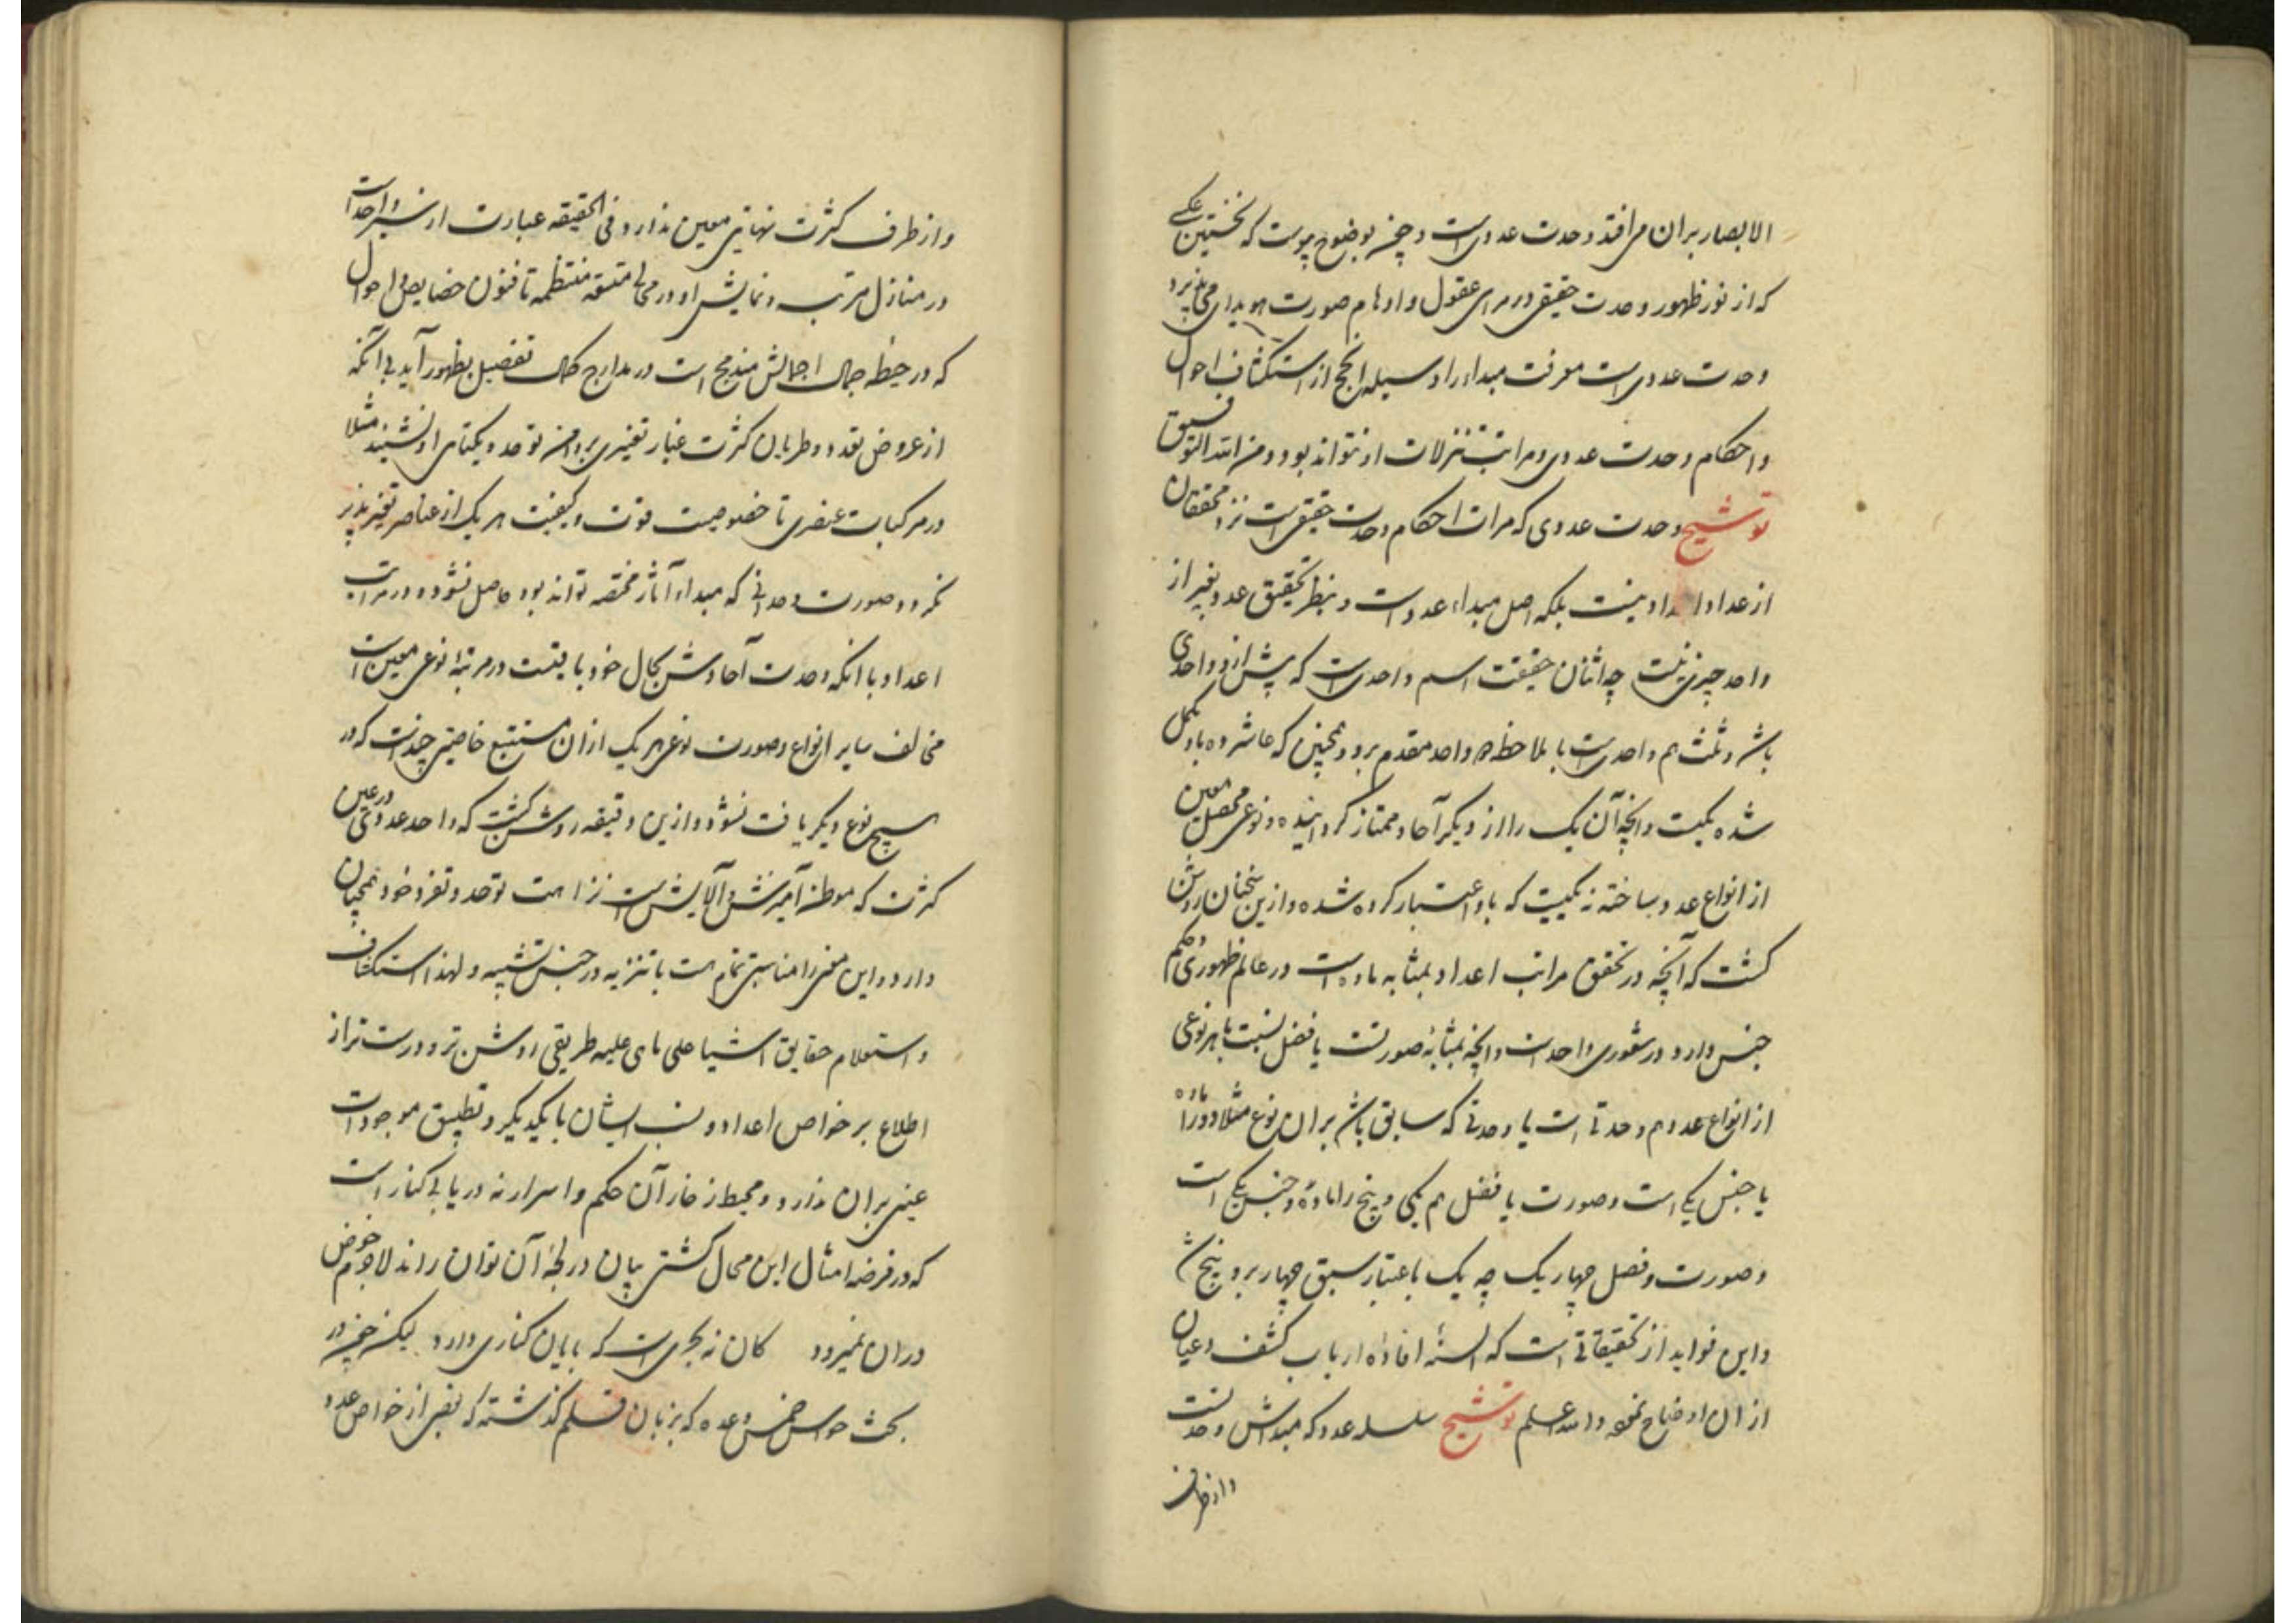 الابصار بران می افتد وحدت عددی است و چون بوضوح پیوست که نخستین عکسی
که از نور ظهور وحدت حقیقی در مرای عقول و اوهام صورت هویدای می پذیرد
وحدت عددی است معرفت مبداء را وسیله انجح از استکشاف احوال
و احکام وحدت عددی و مراتب تنزلات او نتواند بود و من الله التوفیق
توشیح وحدت عددی که مرات احکام وحدت حقیقی است نزد محققان
از عداد اعداد نیست بلکه اصل مبداء عدد است و بنظر تحقیق عدد بغیر از
واحد چیزی نیست چه اثنان حقیقت اسم واحدی است که پیش ازو واحدی
باشد و ثلث هم واحدی است با ملاحظه دو واحد مقدم برو و همچنین که عاشر ده باو مکمل
شده یکیست و آنچه آن یک را از دیگر آحاد ممتاز گردانیده و نوعی محصل معین
از انواع عدد ساخته نه یکیست که باو اعتبار کرده شده و ازین سخنان روشن
گشت که آنچه در تحقق مراتب اعداد بمثابه ماده است در عالم ظهوری و حکم
جنس دارد در شعوری واحد است و آنچه بمثابه صورتست یا فصل نسبت با هر نوعی
از انواع عدد هم وحدتی است یا وحدتی که سابق باشد بران نوع مثلا دو را ماده
یا جنس یکی است و صورت یا فصل هم یکی و پنج را ماده و جنس یکی است
و صورت و فصل چهار یک چه یک باعتبار سبق چهار برو پنج شد
و این فواید از تحقیقاتی است که السنه افاده ارباب کشف و عیان
از ان اوضاح نموده والله اعلم توشیح سلسله عدد که مبداش وحدتست
و از طرف
و از طرف کثرت نهایتی معین ندارد فی الحقیقه عبارت از سیر واحد است
در منازل مرتب و نمایش او در مجالی متسقه منتظمه تا فنون خصایص و احوال
که در حیطه جمال اجمالش مندمج است در مدارج کمال تفصیل بظهور آید بی آنکه
از عروض تعدد و طریان کثرت غبار تغییری بر دامن توحد و یکتای او نشیند مثلا
در مرکبات عنصری تا خصوصیت قوت و کیفیت هر یک از عناصر تغیر پذیر
نگردد صورت وحدانی که مبداء آثار مختصه تواند بود حاصل نشود و در مراتب
اعداد با آنکه وحدت آحادش بحال خود باقیست در مرتبه نوعی معین است
مخالف سایر انواع و صورت نوعی هر یک از ان مستتبع خاصیتی چند است که در
هیچ نوع دیگر یافت نشود و ازین دقیقه روشن گشت که واحد عددی در عین
کثرت که موطن آمیزش و آلایش است نزاهت توحد و تفرد خود همچنان
دارد و این معنی را مناسبتی تمام هست با تنزیه در حین تشبیه و لهذا استکشاف
و استعلام حقایق اشیا علی ما هی علیه طریقی روشن تر و درست تر از
اطلاع بر خواص اعداد و نسب ایشان با یکدیگر و تطبیق موجودات
عینی بران ندارد و محیط زخار آن حکم و اسرار نه دریا بی کنار است
که در فرضه امثال این محال کشتی بیان در لجه آن توان راند لاجرم خوض
دران نمیرود کان نه بحری است که پایان کناری دارد لیکن چون در
بحث حواس خمس وعده که بزبان قلم گذشته که بعضی از خواص عدد